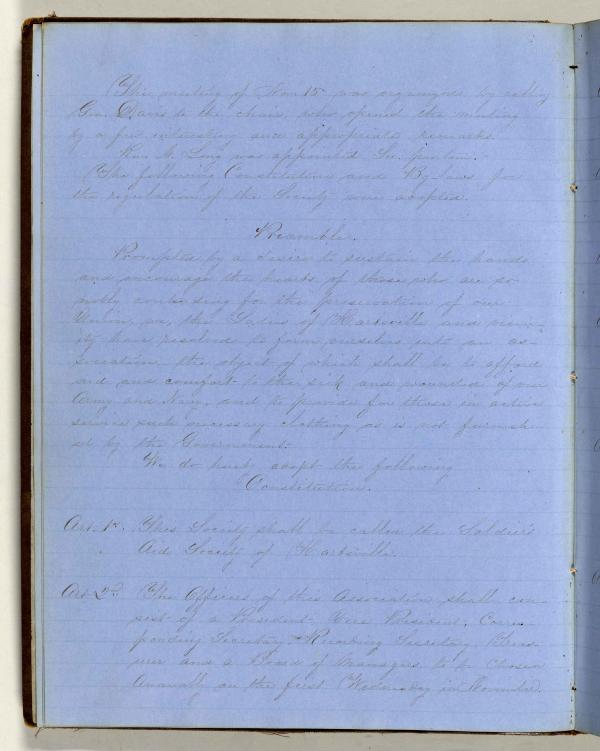 The meeting of Nov 15 was organized by calling
Gen. Davis to the chair, who opened the meeting
by a few interesting and appropriate remarks.
N. Long was appointed Sec. protem.
The following Constitution and By-Laws for
the regulation of the Society were adopted.
Preamble.
Prompted by a desire to sustain the hands
and encourage the hearts of those who are so
nobly contending for the preservation of our
Union, we, the Ladies of Hartsville and vicin-
ity have resolved to form ourselves into an as-
sociation the object of which shall be to afford
aid and comfort to the sick and wounded of our
Army and Navy, and to provide for those in active
service such necessary clothing as is not furnish-
ed by the Government.
We do hereby adopt the following
Constitution.
Art. 1st. This Society shall be called the Soldier's
Aid Society of Hartsville.
Art. 2nd. The Officers of this Association shall con-
sist of a President, Vice President, Corres-
ponding Secretary, Recording Secretary, Treas-
urer and a Board of Managers, to be chosen
Annually on the first Wednesday in November.